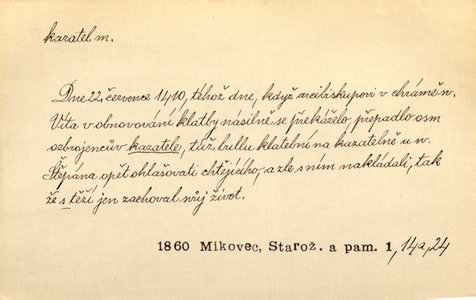 kazatel m.
Dne 22. července 1410, téhož dne, když arcibiskupovi v chrámě sv.
Víta v obnovování klatby násilně se překáželo, přepadlo osm
ozbrojencův kazatele, túž bullu klatební na kazatelně u sv.
Štěpána opět ohlašovati chtějícího, a zle s ním nakládali, tak
že s těží jen zachoval svůj život.
1860 Mikovec, Starož. a pam. 1, 14a, 24